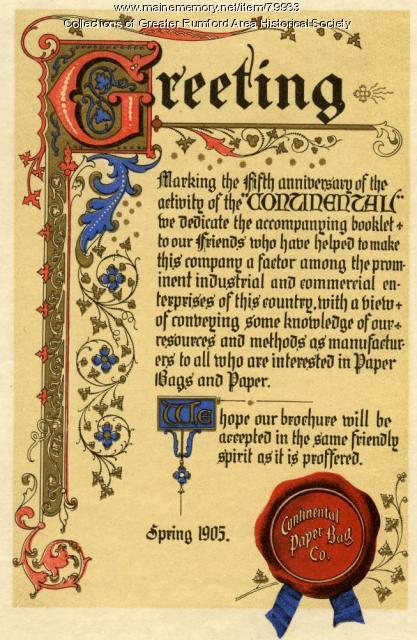 www.mainememory.net/item/79933
Collections of Greater Rumford Area Historical Society
Greeting
Marking the Fifth anniversary of the
activity of the "CONTINENTAL"
we dedicate the accompanying booklet
to our Friends who have helped to make
this company a factor among the prom-
inent industrial and commercial en-
terprises of this country, with a view
of conveying some knowledge of our
resources and methods as manufactur-
ers to all who are interested in Paper
Bags and Paper.
We hope our brochure will be
accepted in the same friendly
spirit as it is proffered.
Spring 1905.
Continental
Paper Bag
Co.